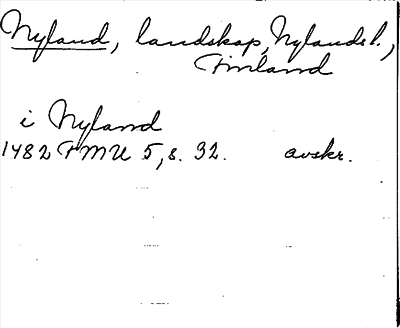 Nyland, landskap, Nylands l.,
Finland
i Nyland
1482 FMU 5, s. 32. avskr.